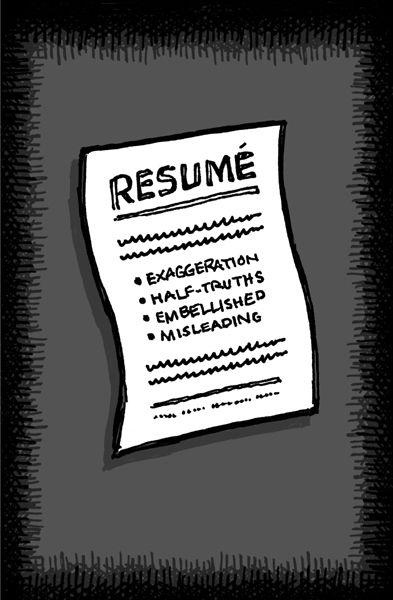 RESUMÉ
• EXAGGERATION
• HALF-TRUTHS
• EMBELLISHED
• MISLEADING